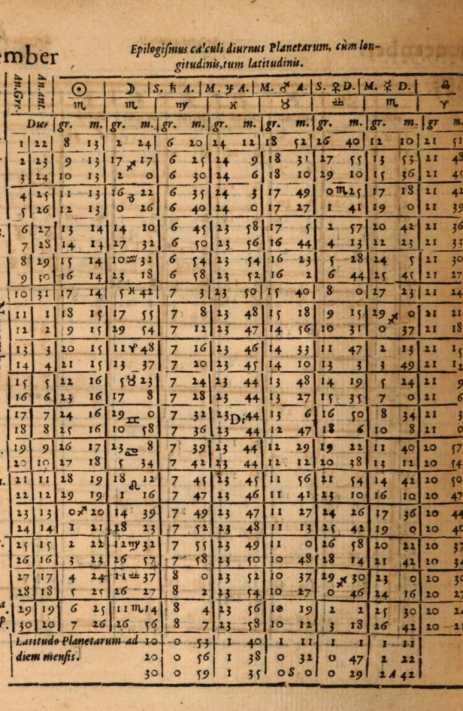 Epilogiſmus calculi diurnus Planetarum, cùm lon-
ember gitudinis, tum latitudinis.
An.Gre. An.ant. ☉ ☽ S. ♄ A. M. ♃ A. M. ♂ A. S. ♀ D. M. ☿ D.
♏ ♏ ♍ ♓ ♉ ♎ ♏ ♈
Dies gr. m. gr. m. gr. m. gr. m. gr. m. gr. m. gr. m. gr m
1 22 8 13 2 24 6 20 24 12 18 52 26 40 12 10 21
2 23 9 13 17 ♐ 17 6 25 24 9 18 31 27 55 13 53 21 48
3 24 10 13 2 0 6 30 24 6 18 10 29 10 15 36 21 45
4 25 11 13 16 ♑ 22 6 35 24 3 17 49 0 ♏ 25 17 18 21 42
5 26 12 13 0 26 6 40 24 0 17 27 1 41 19 0 21 39
6 27 13 14 14 10 6 45 23 58 17 5 2 57 20 42 21 36
7 28 14 14 27 32 6 50 23 56 16 44 4 13 22 23 21 33
8 29 15 14 10 ♒ 32 6 54 23 54 16 23 5 28 24 5 21 30
9 30 16 14 23 18 6 58 23 52 16 2 6 44 25 45 21 27
10 31 17 14 5 ♓ 42 7 3 23 50 15 40 8 0 27 23 21 24
11 1 18 15 17 55 7 8 23 48 15 18 9 15 29 ♐ 0 21 21
12 2 9 15 29 54 7 12 23 47 14 56 10 31 0 37 21 18
13 3 20 15 11 ♈ 48 7 16 23 46 14 33 11 47 2 13 21 15
14 4 21 15 23 37 7 20 23 45 14 10 13 3 3 49 21 12
15 5 22 16 5 ♉ 23 7 24 23 44 13 48 14 19 5 24 21 9
16 6 23 16 17 8 7 28 23 44 13 27 15 35 7 0 21 6
17 7 24 16 29 ♊ 0 7 32 23 Di 44 13 6 16 50 8 34 21 3
18 8 25 16 10 58 7 36 23 44 12 47 18 6 10 8 21 0
19 9 26 17 23 ♋ 8 7 39 23 44 12 29 19 22 11 40 20 57
20 10 27 18 5 34 7 42 23 44 12 12 20 38 13 12 20 54
21 11 28 19 18 ♌ 12 7 45 23 45 11 56 21 54 14 42 20 50
22 12 29 19 1 16 7 47 23 46 11 41 23 10 16 10 20 47
23 13 0 ♐ 20 14 39 7 49 23 47 11 27 24 26 17 36 20 44
24 14 1 21 28 23 7 52 23 48 11 13 25 42 19 0 20 40
25 15 2 22 12 ♍ 32 7 55 23 49 11 0 26 58 20 22 20 37
26 16 3 23 26 57 7 58 23 50 10 48 28 14 21 42 20 34
27 17 4 24 11 ♎ 37 8 0 23 52 10 37 29 ♐ 30 23 0 20 30
28 18 5 25 26 27 8 2 23 54 10 27 0 46 24 16 20 27
29 19 6 25 11 ♏ 14 8 4 23 56 10 19 2 2 25 30 20 24
30 20 7 26 26 56 8 7 23 58 10 12 3 18 26 42 20 21
Latitudo Planetarum ad 10 0 53 1 40 1 11 1 1 1 11
diem mensis. 20 0 56 1 38 0 32 0 47 2 22
30 0 59 1 35 0 S 0 0 29 2 A 42